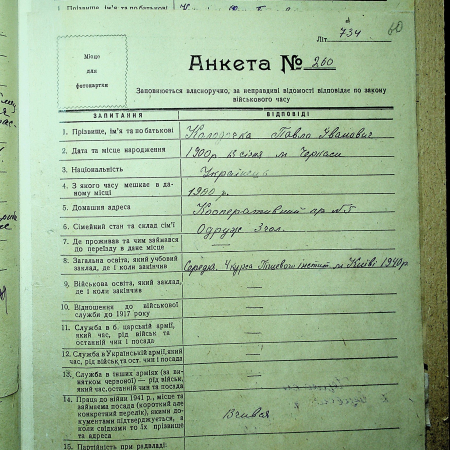 1. Прізвище, ім'я та по батькові
Літ. 734 60
Місце
для
фотокартки
Анкета № 260
Заповнюється власноручно, за неправдиві відомості відповідає по закону
військового часу
ЗАПИТАННЯ ВІДПОВІДІ
1. Прізвище, ім'я та по батькові Павло Иванович
2. Дата та місце народження 1900р 13 січня м Черкаси
3. Національність Українець
4. З якого часу мешкає в да-
ному місці 1900 р.
5. Домашня адреса Кооперативний
6. Сімейний стан та склад сім'ї Одруж 3 чол.
7. Де проживав та чим займався
до переїзду в дане місце —
8. Загальна освіта, який учбовий
заклад, де і коли закінчив Середня. інстит. м Київі 1940р
9. Військова освіта, який заклад,
де і коли закінчив —
10. Відношення до військової
служби до 1917 року —
11. Служба в б. царській армії,
який час, рід військ та
останній чин і посада —
12. Служба в Українській армії, який
час, рід військ та ост. чин і посада —
13. Служба в інших арміях (за ви-
нятком червоної) — рід військ,
який час, останній чин та посада —
14. Праця до війни 1941 р., місце та
займаєма посада (короткий але
конкретний перелік), якими до-
кументами підтверджується, а
коли свідками то їх прізвище
та адреса Вчився
15. Партійність при радвладі: